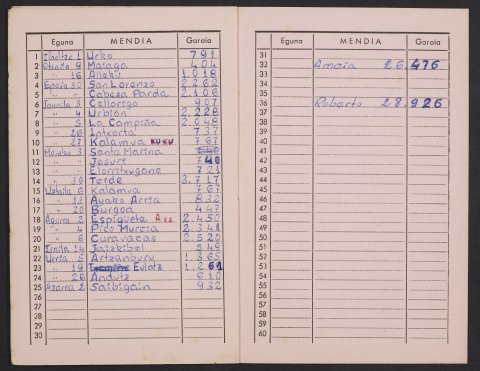 Eguna MENDIA Garaia
1 1 Urko 791
2 9 Maiaga 404
3 " 16 Alleku 1.018
4 30 San Lorenzo 2.262
5 " " Cabeza Parda 2.106
6 3 Cellorigo 907
7 " 4 Urbión 2.228
8 " 5 La Campiña 2.048
9 " 26 Intxorta 737
10 " 27 Kalamua KUKU 767
11 3 Santa Marina
12 " " Jesuri 40
13 " " Elorritxugane 721
14 " 30 Teide 3.717
15 Uztaila 6 Kalamua 767
16 " 13 Ayako Arria 832
17 " 20 Burgoa 447
18 Agorra 2 Espigüete 2.450
19 " 4 Pico Murcia 2.341
20 " 6 Curavacas 2.520
21 Iraila 14 Jaizkibel 549
22 Urria 5 Artzanburu 1.365
23 " 19 Eulatz 1.261
24 " 26 Andutz 610
25 Azaroa 2 Saibigain 932
26
27
28
29
30
Eguna MENDIA Garaia
31
32 Amaia 26.476
33
34
35
36 Roberto 28.926
37
38
39
40
41
42
43
44
45
46
47
48
49
50
51
52
53
54
55
56
57
58
59
60